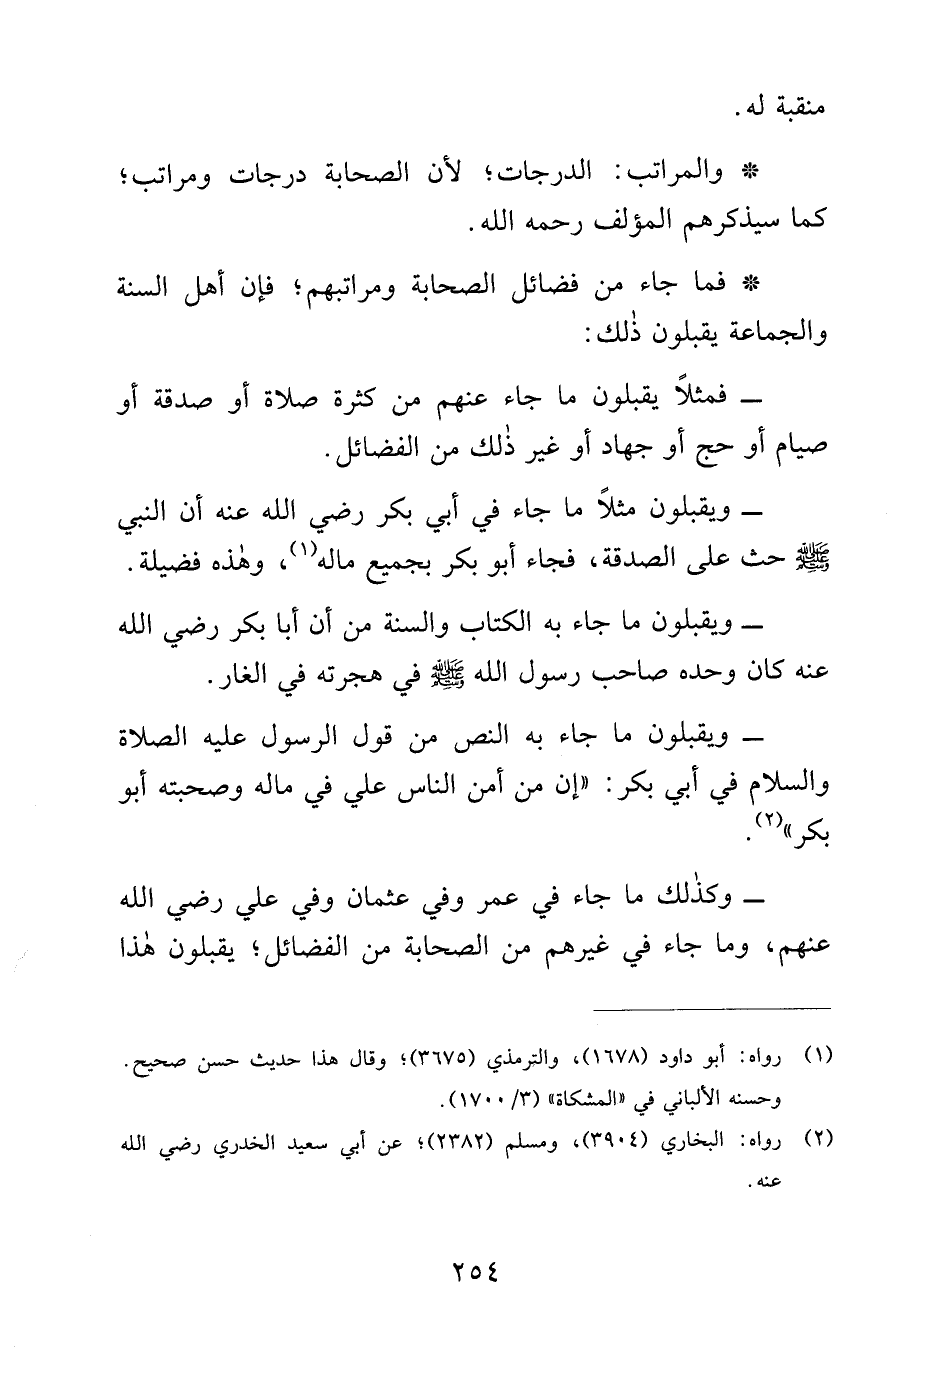 منقبة له .
* والمراتب: الدرجات؛ لأن الصحابة درجات ومراتب؛
كما سيذكرهم المؤلف رحمه الله .
* فما جاء من فضائل الصحابة ومراتبهم؛ فإن أهل السنة
والجماعة يقبلون ذٰلك:
ــ فمثلاً يقبلون ما جاء عنهم من كثرة صلاة أو صدقة أو
صيام أو حج أو جهاد أو غير ذٰلك من الفضائل.
ــ ويقبلون مثلاً ما جاء في أبي بكر رضي الله عنه أن النبي
ﷺ حث على الصدقة، فجاء أبو بكر بجميع ماله(١)، وهٰذه فضيلة.
ــ ويقبلون ما جاء به الكتاب والسنة من أن أبا بكر رضي الله
عنه كان وحده صاحب رسول الله ﷺ في هجرته في الغار.
ــ ويقبلون ما جاء به النص من قول الرسول عليه الصلاة
والسلام في أبي بكر: «إن من أمن الناس علي في ماله وصحبته أبو
بكر»(٢).
ــ وكذٰلك ما جاء في عمر وفي عثمان وفي علي رضي الله
عنهم، وما جاء في غيرهم من الصحابة من الفضائل؛ يقبلون هٰذا
(١) رواه: أبو داود (١٦٧٨)، والترمذي (٣٦٧٥)؛ وقال هذا حديث حسن صحيح.
وحسنه الألباني في «المشكاة» (٣/ ١٧٠٠).
(٢) رواه: البخاري (٣٩٠٤)، ومسلم (٢٣٨٢)؛ عن أبي سعيد الخدري رضي الله
عنه.
٢٥٤